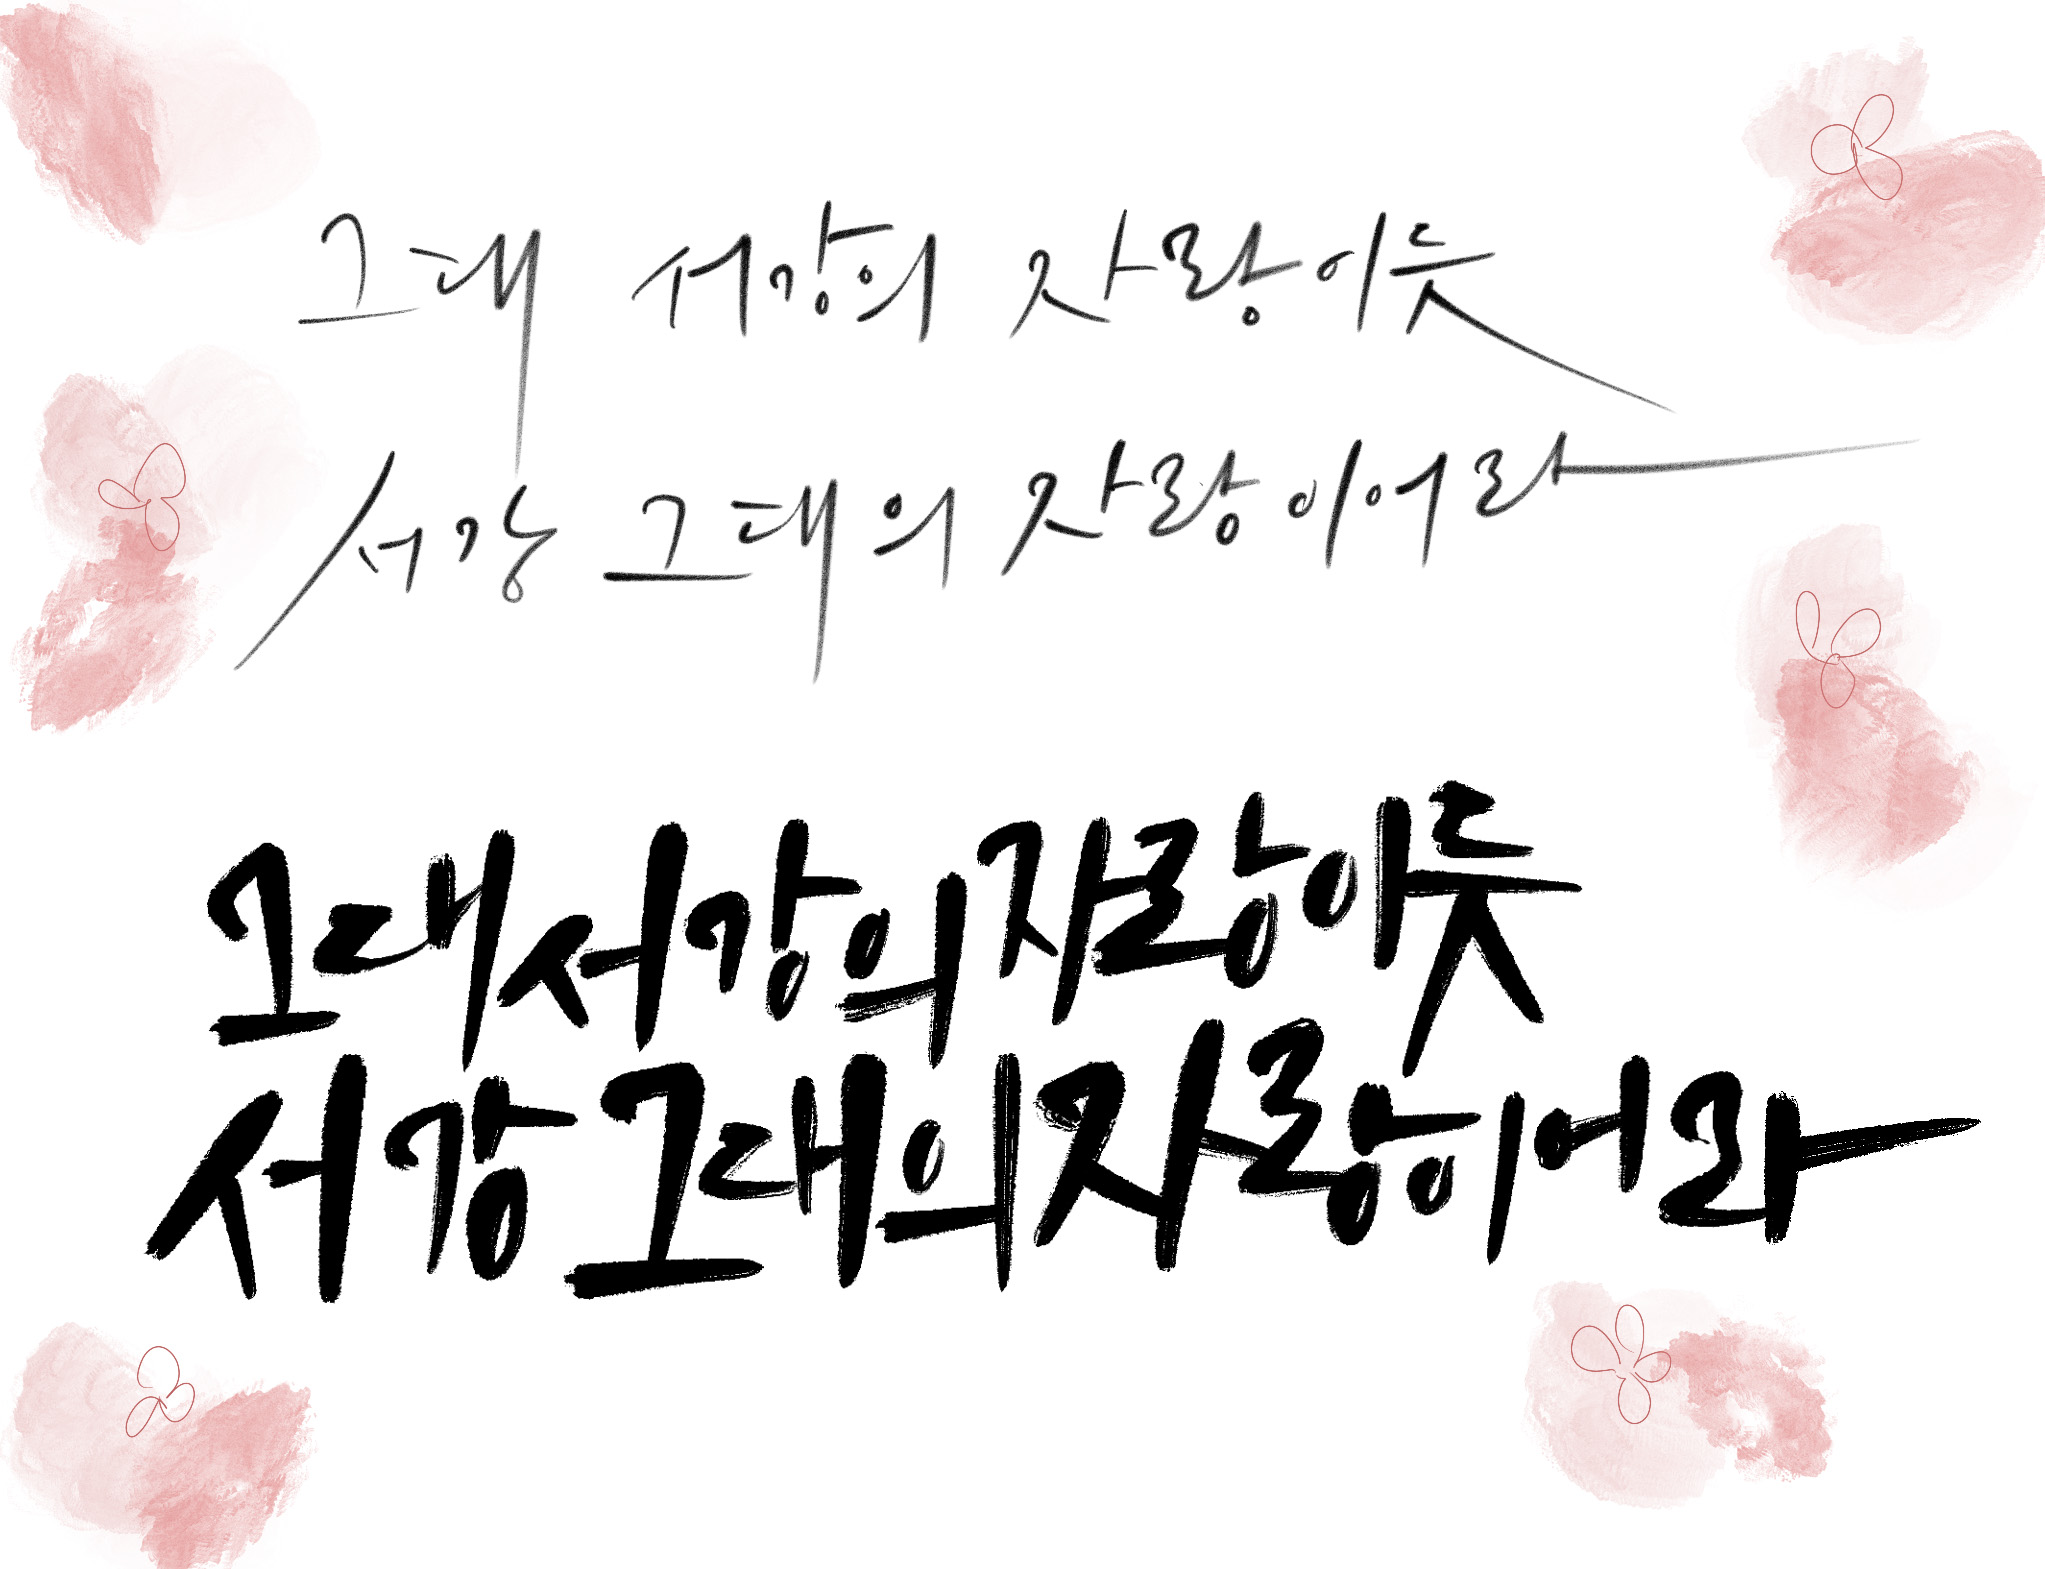 그대 서강의 자랑이듯
서강 그대의 자랑이어라
그대 서강의 자랑이듯
서강 그대의 자랑이어라